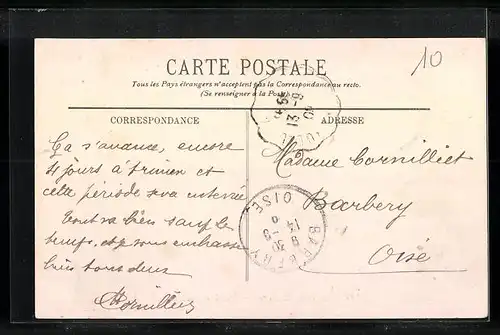 10
CARTE POSTALE
Tous les Pays étrangers n'acceptent pas la Correspondance au recto.
(Se renseigner à la Poste)
CORRESPONDANCE
Ça s'avance, encore
jours à trimer et
cette période sera
Tout va bien sauf le
temps, et je vous embrasse
bien tous deux
Cornilliet
ADRESSE
Madame Cornilliet
Barbery
Oise
13 -9
09
BARBERY
OISE